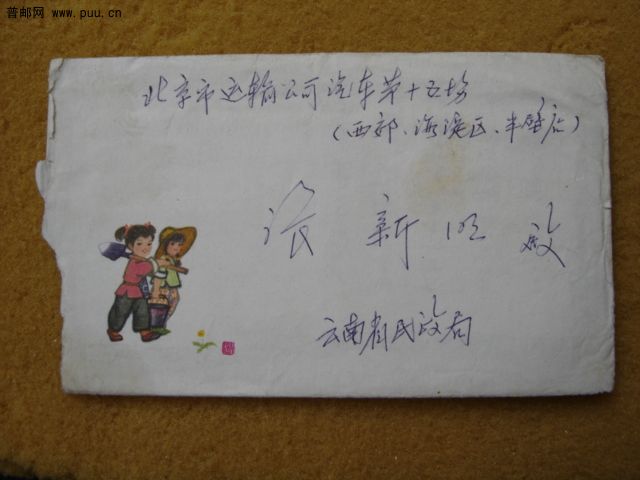 普邮网 www.puu.cn
北京市运输公司汽车第十五场
(西郊、海淀区、半壁店)
张新明啟
云南省民政局